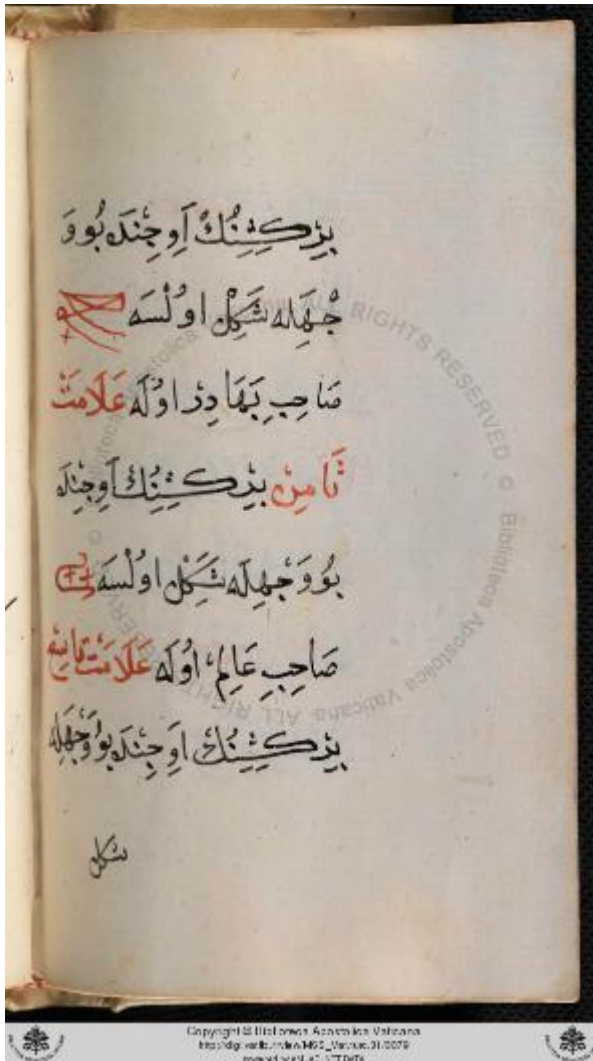 بِرْ كِشِنِكْ آوِجِنْدَه بُو وَ
جْهِلَه شَكِلْ اوُلْسَه
صَاحِبِ بَهَادِرْ اوُلَه عَلَامَتْ
ثَامِنْ بِرْ كِشِنِكْ آوِجِنْدَه
بُو وَجْهِلَه شَكِلْ اوُلْسَه
صَاحِبِ عَالِمْ اوُلَه عَلَامَتْ تَاسِعْ
بِرْ كِشِنِكْ اَوِجِنْدَه بُو وَجْهِلَه
شكل
ALL RIGHTS RESERVED © Biblioteca Apostolica Vaticana
Copyright © Biblioteca Apostolica Vaticana